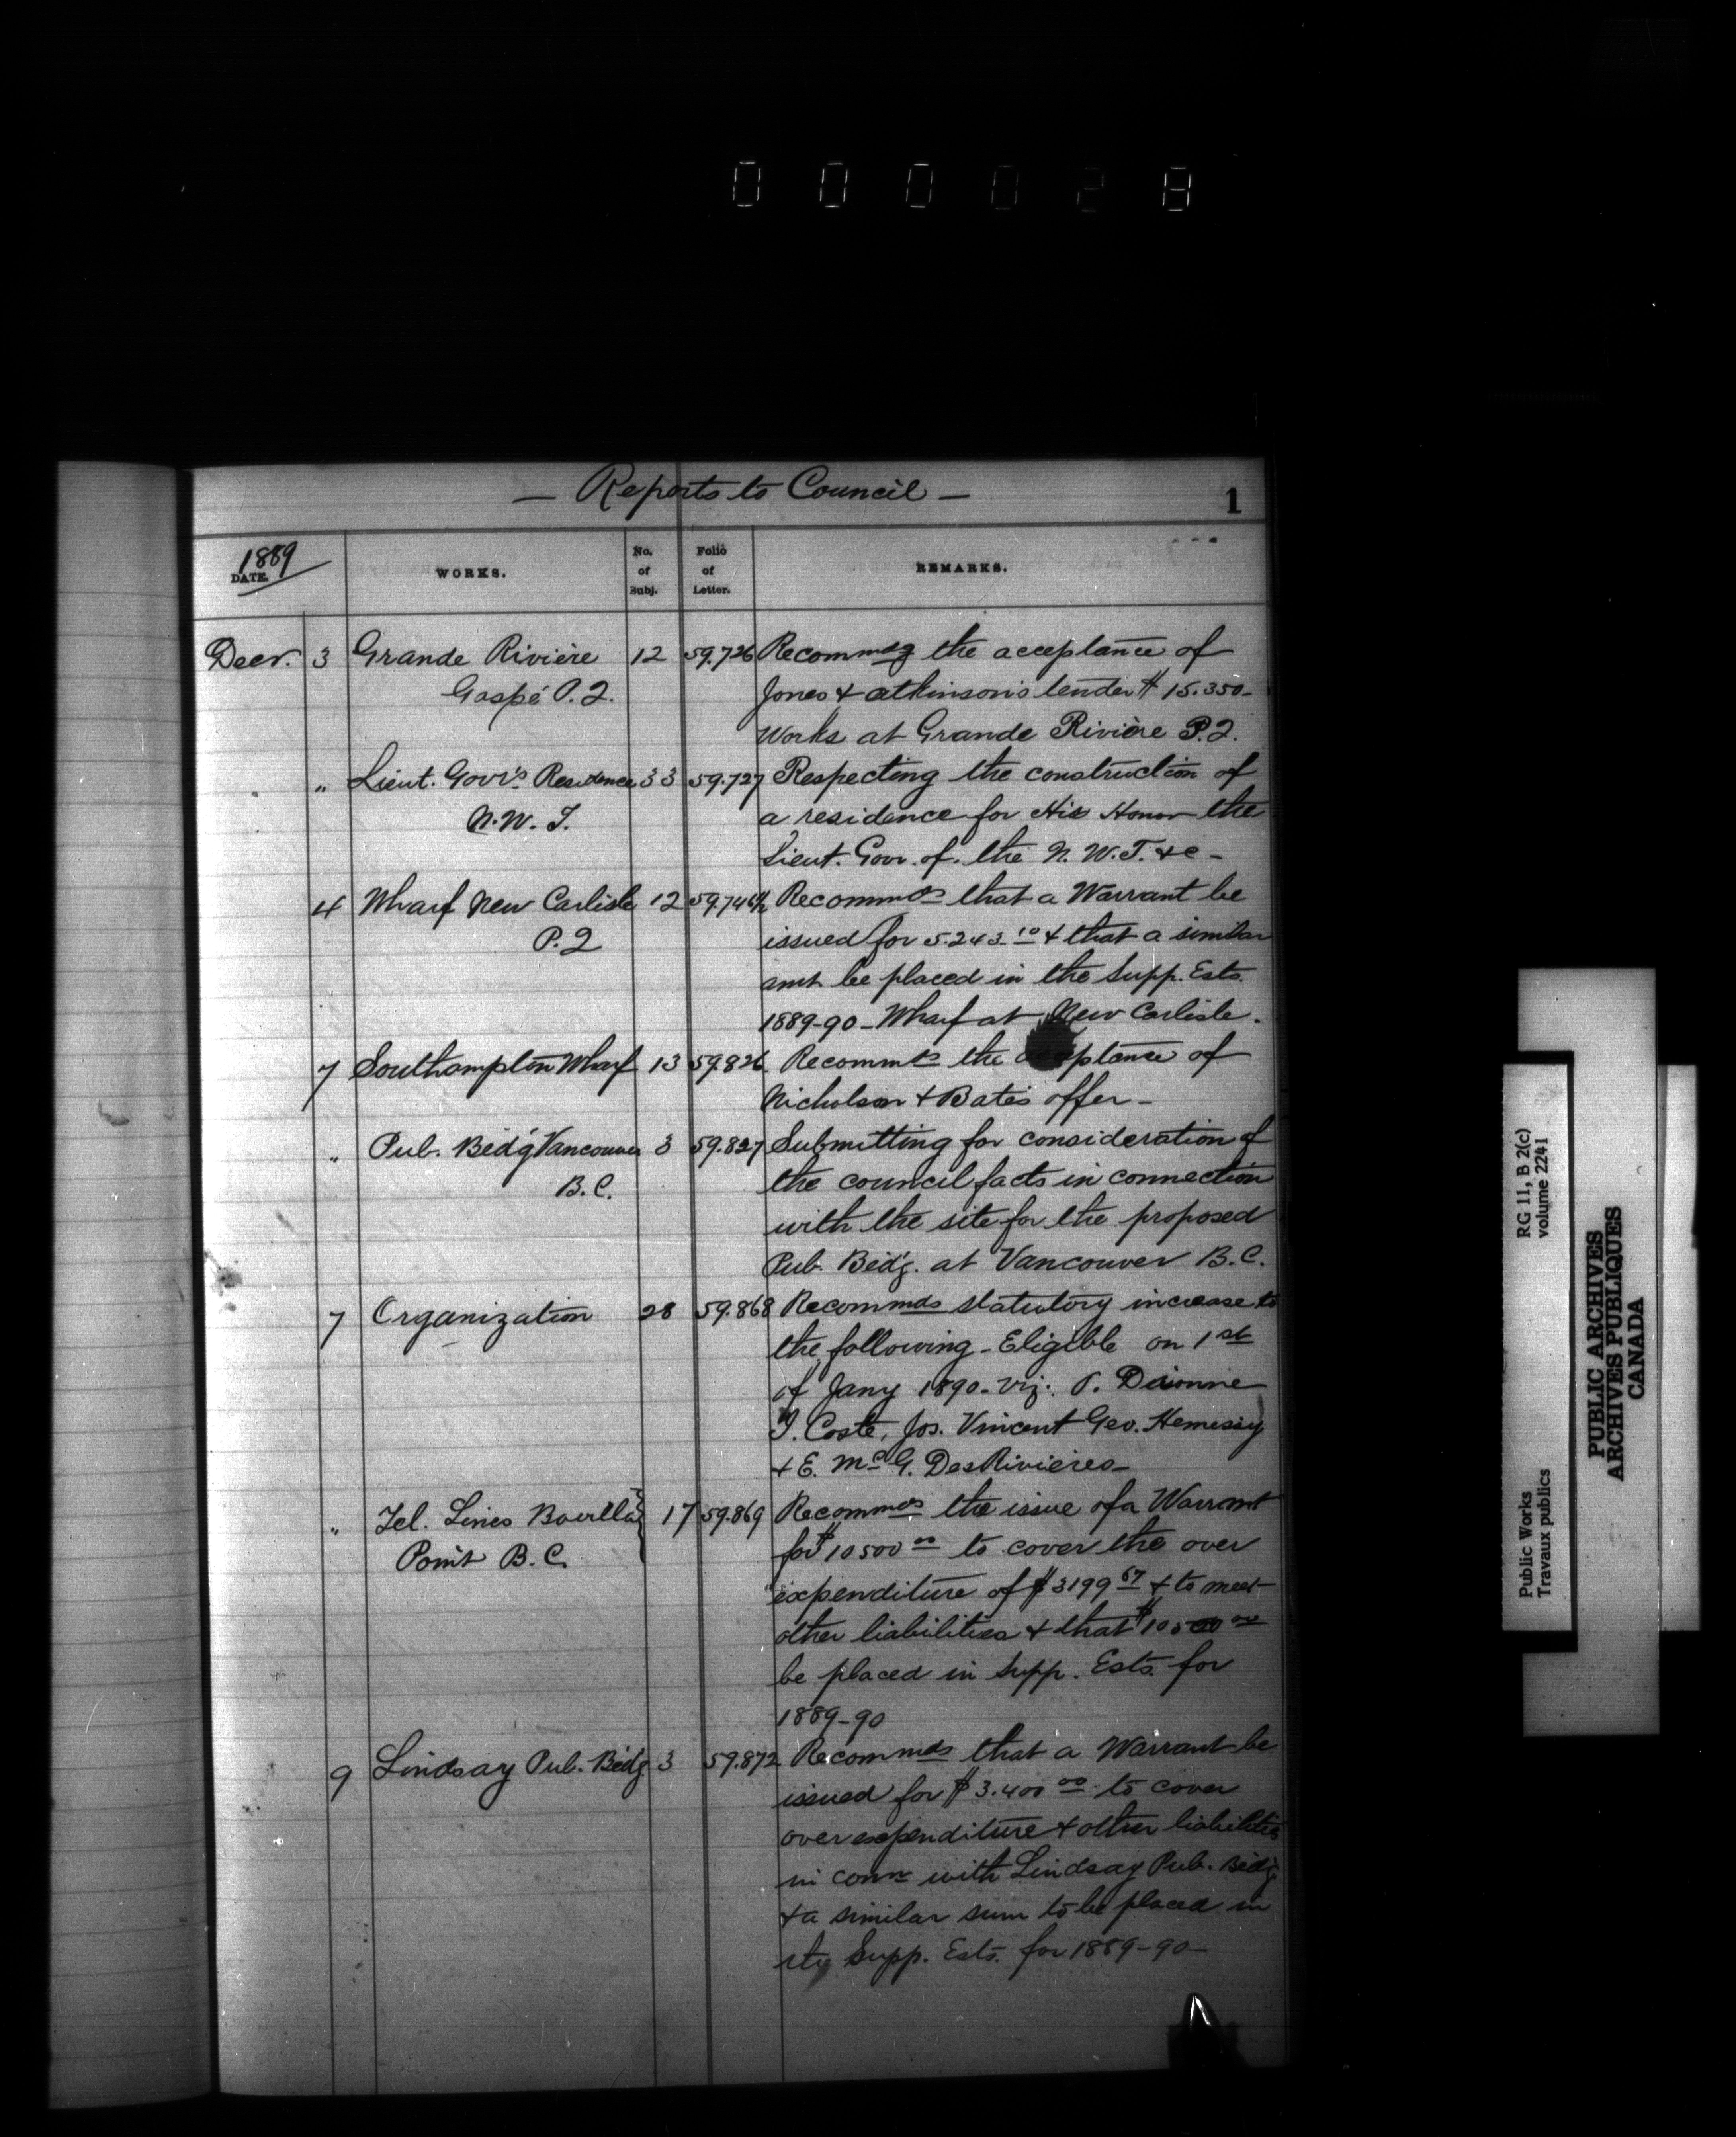 0 0 0 0 2 8
— Reports to Council —
1
1889
DATE.
WORKS.
No. of Subj.
Folio of Letter.
REMARKS.
Decr. 3 Grande Rivière 12 59.726 Recommdg the acceptance of
Gaspé P.Q. Jones & Atkinson's tender $15.350—
Works at Grande Rivière P.Q.
" Lieut. Gov's Residence 33 59.727 Respecting the construction of
N.W.T. a residence for His Honor the
Lieut. Govr. of the N.W.T. &c—
4 Wharf New Carlisle 12 59.746½ Recommds that a Warrant be
P.Q issued for 5.243.10 & that a similar
amt be placed in the Supp. Ests.
1889-90—Wharf at New Carlisle.
7 Southampton Wharf 13 59.826 Recommds the acceptance of
Nicholson & Bates offer—
" Pub. Bldg Vancouver 3 59.827 Submitting for consideration of
B.C. the council facts in connection
with the site for the proposed
Pub. Bldg. at Vancouver B.C.
7 Organization 28 59.868 Recommds statutory increase to
the following—Eligible on 1st
of Jany 1890—viz: P. Dionne
Coste, Jos. Vincent Geo. Hemesay
& E. McG. DesRivieres—
" Tel. Lines 17 59.869 Recommds the issue of a Warrant
Point B.C. for $10500 00 to cover the over
expenditure of $3199 67 & to meet
other liabilities & that $10500 00
be placed in Supp. Ests. for
1889-90
9 Lindsay Pub. Bldg. 3 59.872 Recommds that a Warrant be
issued for $3.400 00 to cover
over expenditure & other liabilities
in conn with Lindsay Pub. Bldg
& a similar sum to be placed in
the Supp. Ests. for 1889-90—
RG 11, B 2(c)
volume 2241
Public Works
Travaux publics
PUBLIC ARCHIVES
ARCHIVES PUBLIQUES
CANADA